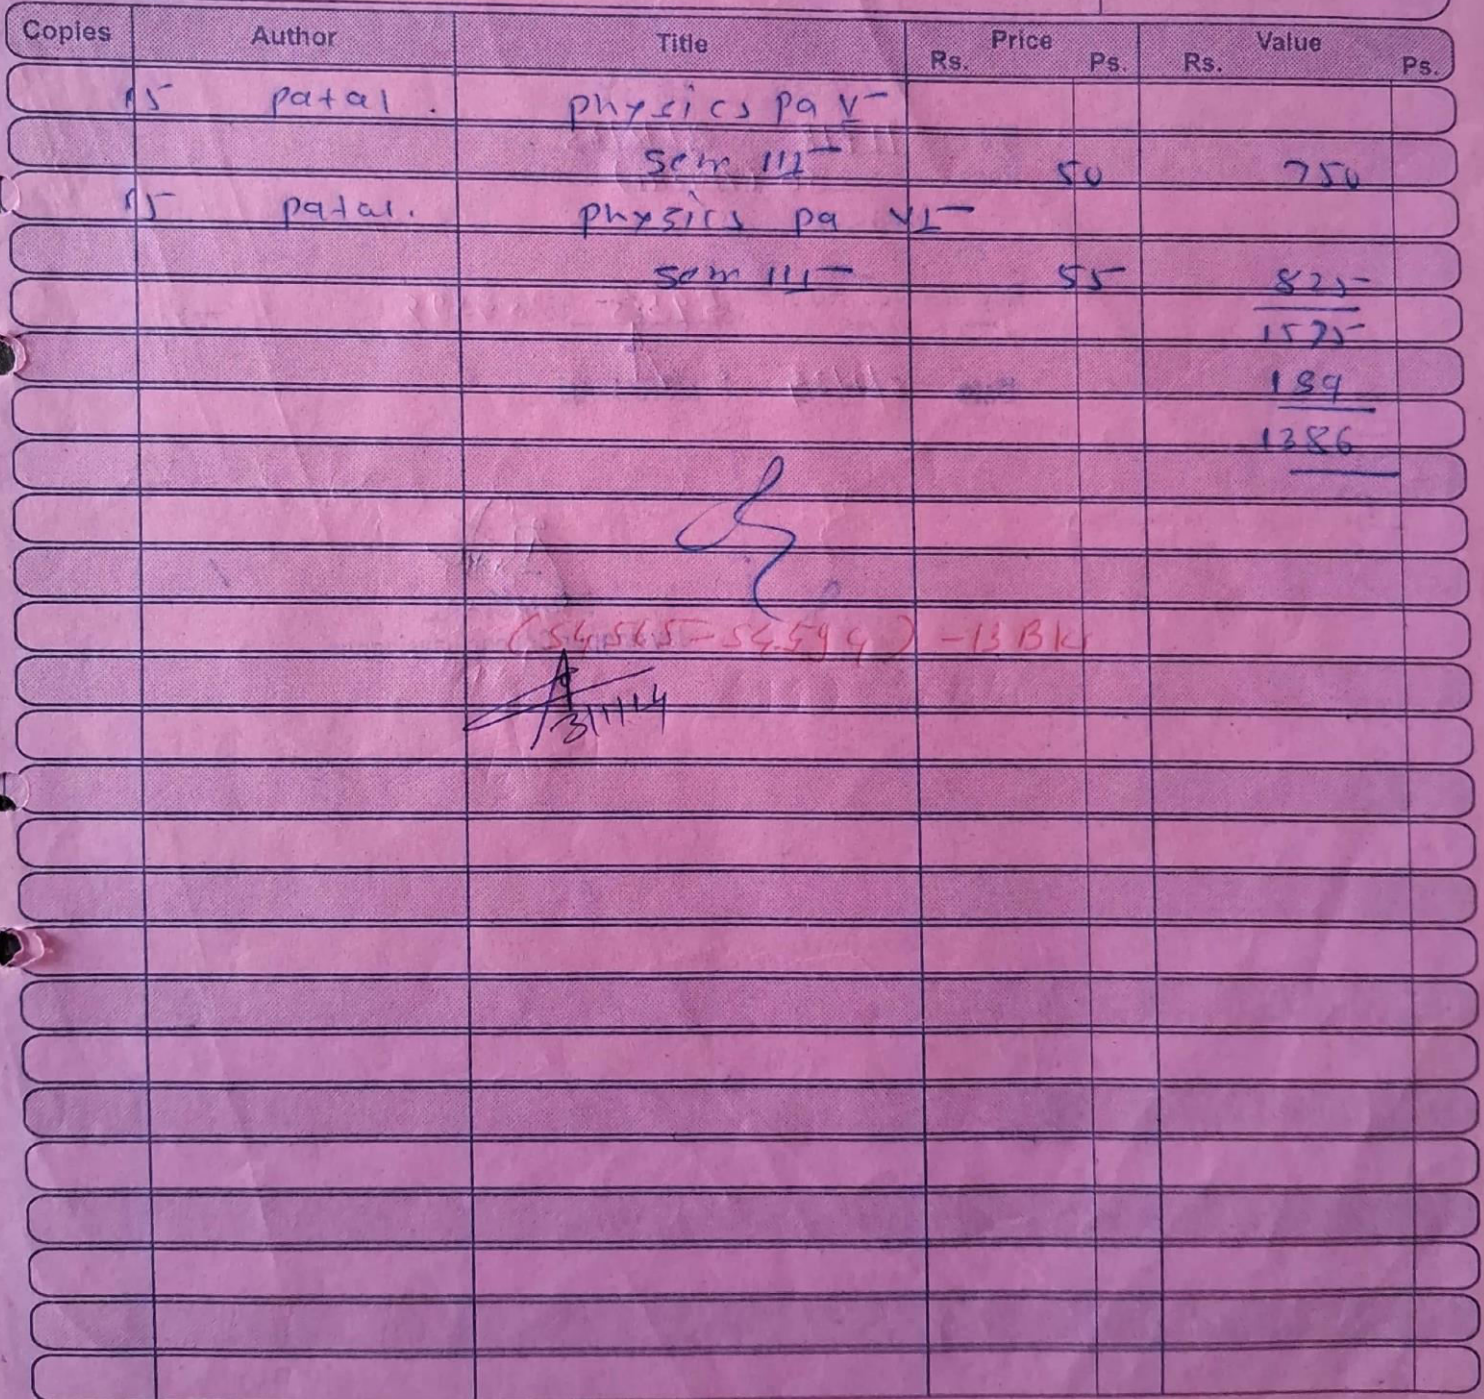 Copies Author Title Price Value
Rs. Ps. Rs. Ps.
15 patal. physics pa V
sem III 50 750
15 patal. physics pa VI
sem III 55 825
1575
189
1386
(54565-54594) -13 Bk
3/1/14